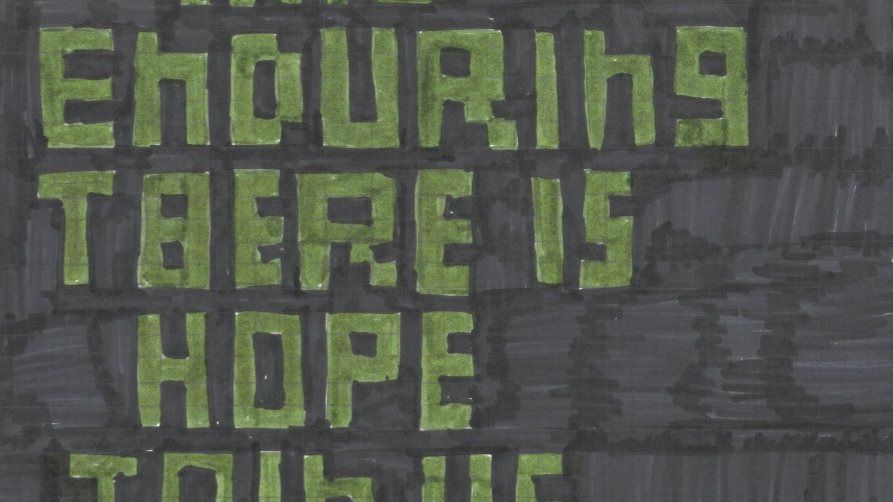 EnDURIng
TBERE IS
HOPE